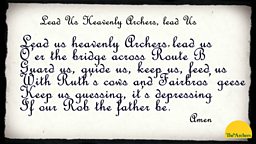 Lead Us Heavenly Archers, lead Us
Lead us heavenly Archers.lead us
O er the bridge across Route B
Guard us, guide us, keep us, feed us
With Ruth's cows and Fairbros geese
Keep us guessing, it's depressing
If our Rob the father be.
Amen
The Archers